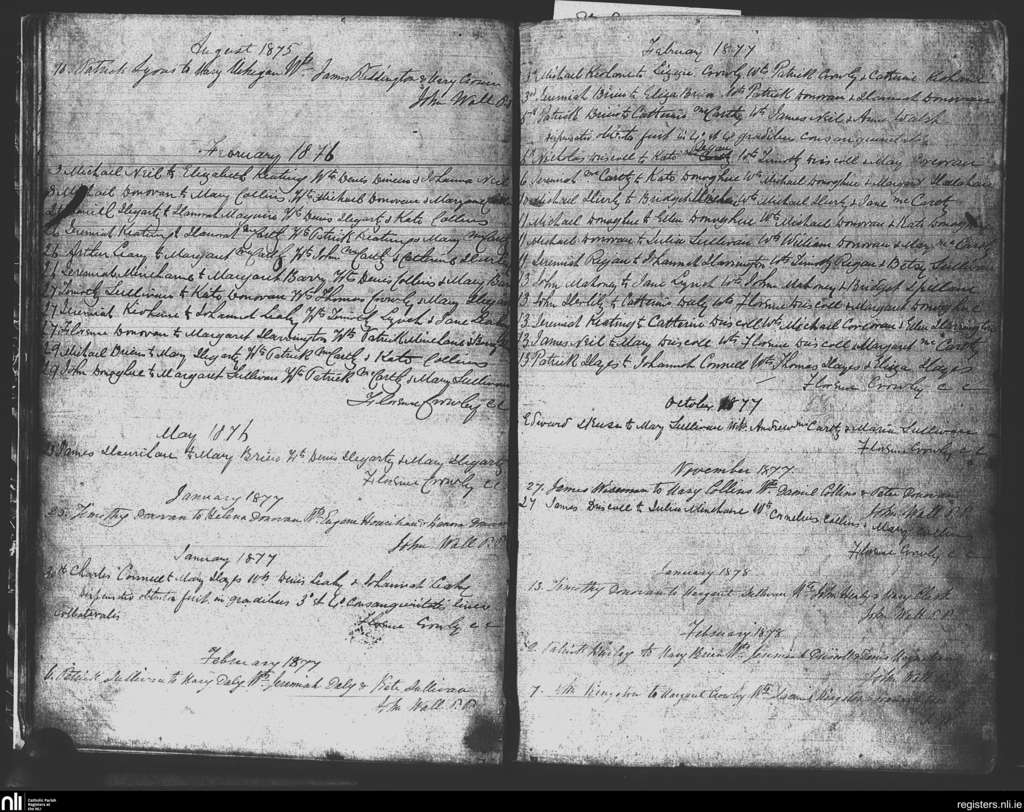 August 1875
10. Patrick Lyons to Mary Wt. James Reddington & Mary
John Wall P.P.
February 1876
3 Michael Neil to Elizabeth Keating Wts Denis & Johanna Neil
Michael Donovan to Mary Collins Wts Michael Donovan & Margaret
Daniel Hegarty to Hannah Maguire Wts Denis Hegarty & Kate Collins
Jeremiah Keating to Hannah McCarthy Wts Patrick Keating & Mary McCarthy
26 Arthur Leary to Margaret McCarthy Wts John McCarthy & Catherine
Jeremiah Minehane to Margaret Barry Wts Denis Collins & Mary Barry
27 Timothy Sullivan to Kate Donovan Wts Thomas Crowly & Mary Hegarty
27 Jeremiah Keohane to Johannah Leahy Wts Timothy Lynch & Jane
27 Florence Donovan to Margaret Harrington Wts Patrick Minehane &
29 Michael Briens to Mary Hegarty Wts Patrick McCarthy & Kate Collins
29 John Donoghue to Margaret Sullivan Wts Patrick McCarthy & Mary Sullivan
Florence Crowley C C
May 1876
James Hourihane to Mary Briens Wts Denis Hegarty & Mary Hegarty
Florence Crowly C C
January 1877
25. Timothy Donovan to Helena Donovan Wts Eugene Hourihan & Donovan
John Wall P.P.
January 1877
30th Charles Connell to Mary Hayes Wts Denis Leahy & Johannah Leahy
Dispensatio obtenta fuit in gradibus 3o & 4o Consanguinitatis lineae
Collateralis
Florence Crowly C C
February 1877
6. Patrick Sullivan to Mary Daly Wts Jeremiah Daly & Kate Sullivan
John Wall P.P.
February 1877
1st Michael Keohane to Lizzie Crowly Wts Patrick Crowly & Catherine Keohane
3rd Jeremiah Briens to Eliza Brien Wts Patrick Donovan & Hannah Donovan
5th Patrick Briens to Catherine McCarthy Wts James Neil & Ann Walsh
dispensatio obtenta fuit in 4o & 4o gradibus consanguinitatis
Nicholas Driscoll to Kate Wts Timothy Driscoll & Mary Corcoran
6 Jeremiah McCarthy to Kate Donoghue Wts Michael Donoghue &
10 Michael Hurly to Bridget Wts Michael Hurly & Jane McCarthy
11 Michael Donoghue to Ellen Donoghue Wts Michael Donovan & Kate Donoghue
Michael Donovan to Julia Sullivan Wts William Donovan & Mary McCarthy
11 Jeremiah Regan to Johannah Harrington Wts Timothy Regan & Betsy Sullivan
13 John Mahoney to Jane Lynch Wts John Mahoney & Bridget Spillane
13 John to Catherine Daly Wts Florence Driscoll & Margaret Donoghue
13 Jeremiah Keating to Catherine Driscoll Wts Michael Corcoran & Ellen Harrington
13 James Neil to Mary Driscoll Wts Florence Driscoll & Margaret McCarthy
13 Patrick Hayes to Johannah Connell Wts Thomas Hayes & Eliza Hayes
Florence Crowly C C
October 1877
Edward to Mary Sullivan Wts Andrew McCarthy & Maria Sullivan
Florence Crowly C C
November 1877
27. James Wiseman to Mary Collins Wts Daniel Collins & Peter Donovan
John Wall P.P.
27 James Driscoll to Julia Minehane Wts Cornelius Collins & Mary
Florence Crowly C C
January 1878
13. Timothy Donovan to Margaret Sullivan Wts John & Mary
John Wall P.P.
February 1878
Patrick to Mary Brien Wts Jeremiah
John Wall
7. John Kingston to Margaret Crowly Wts Samuel Kingston
nli
Catholic Parish
Registers at
the NLI
registers.nli.ie